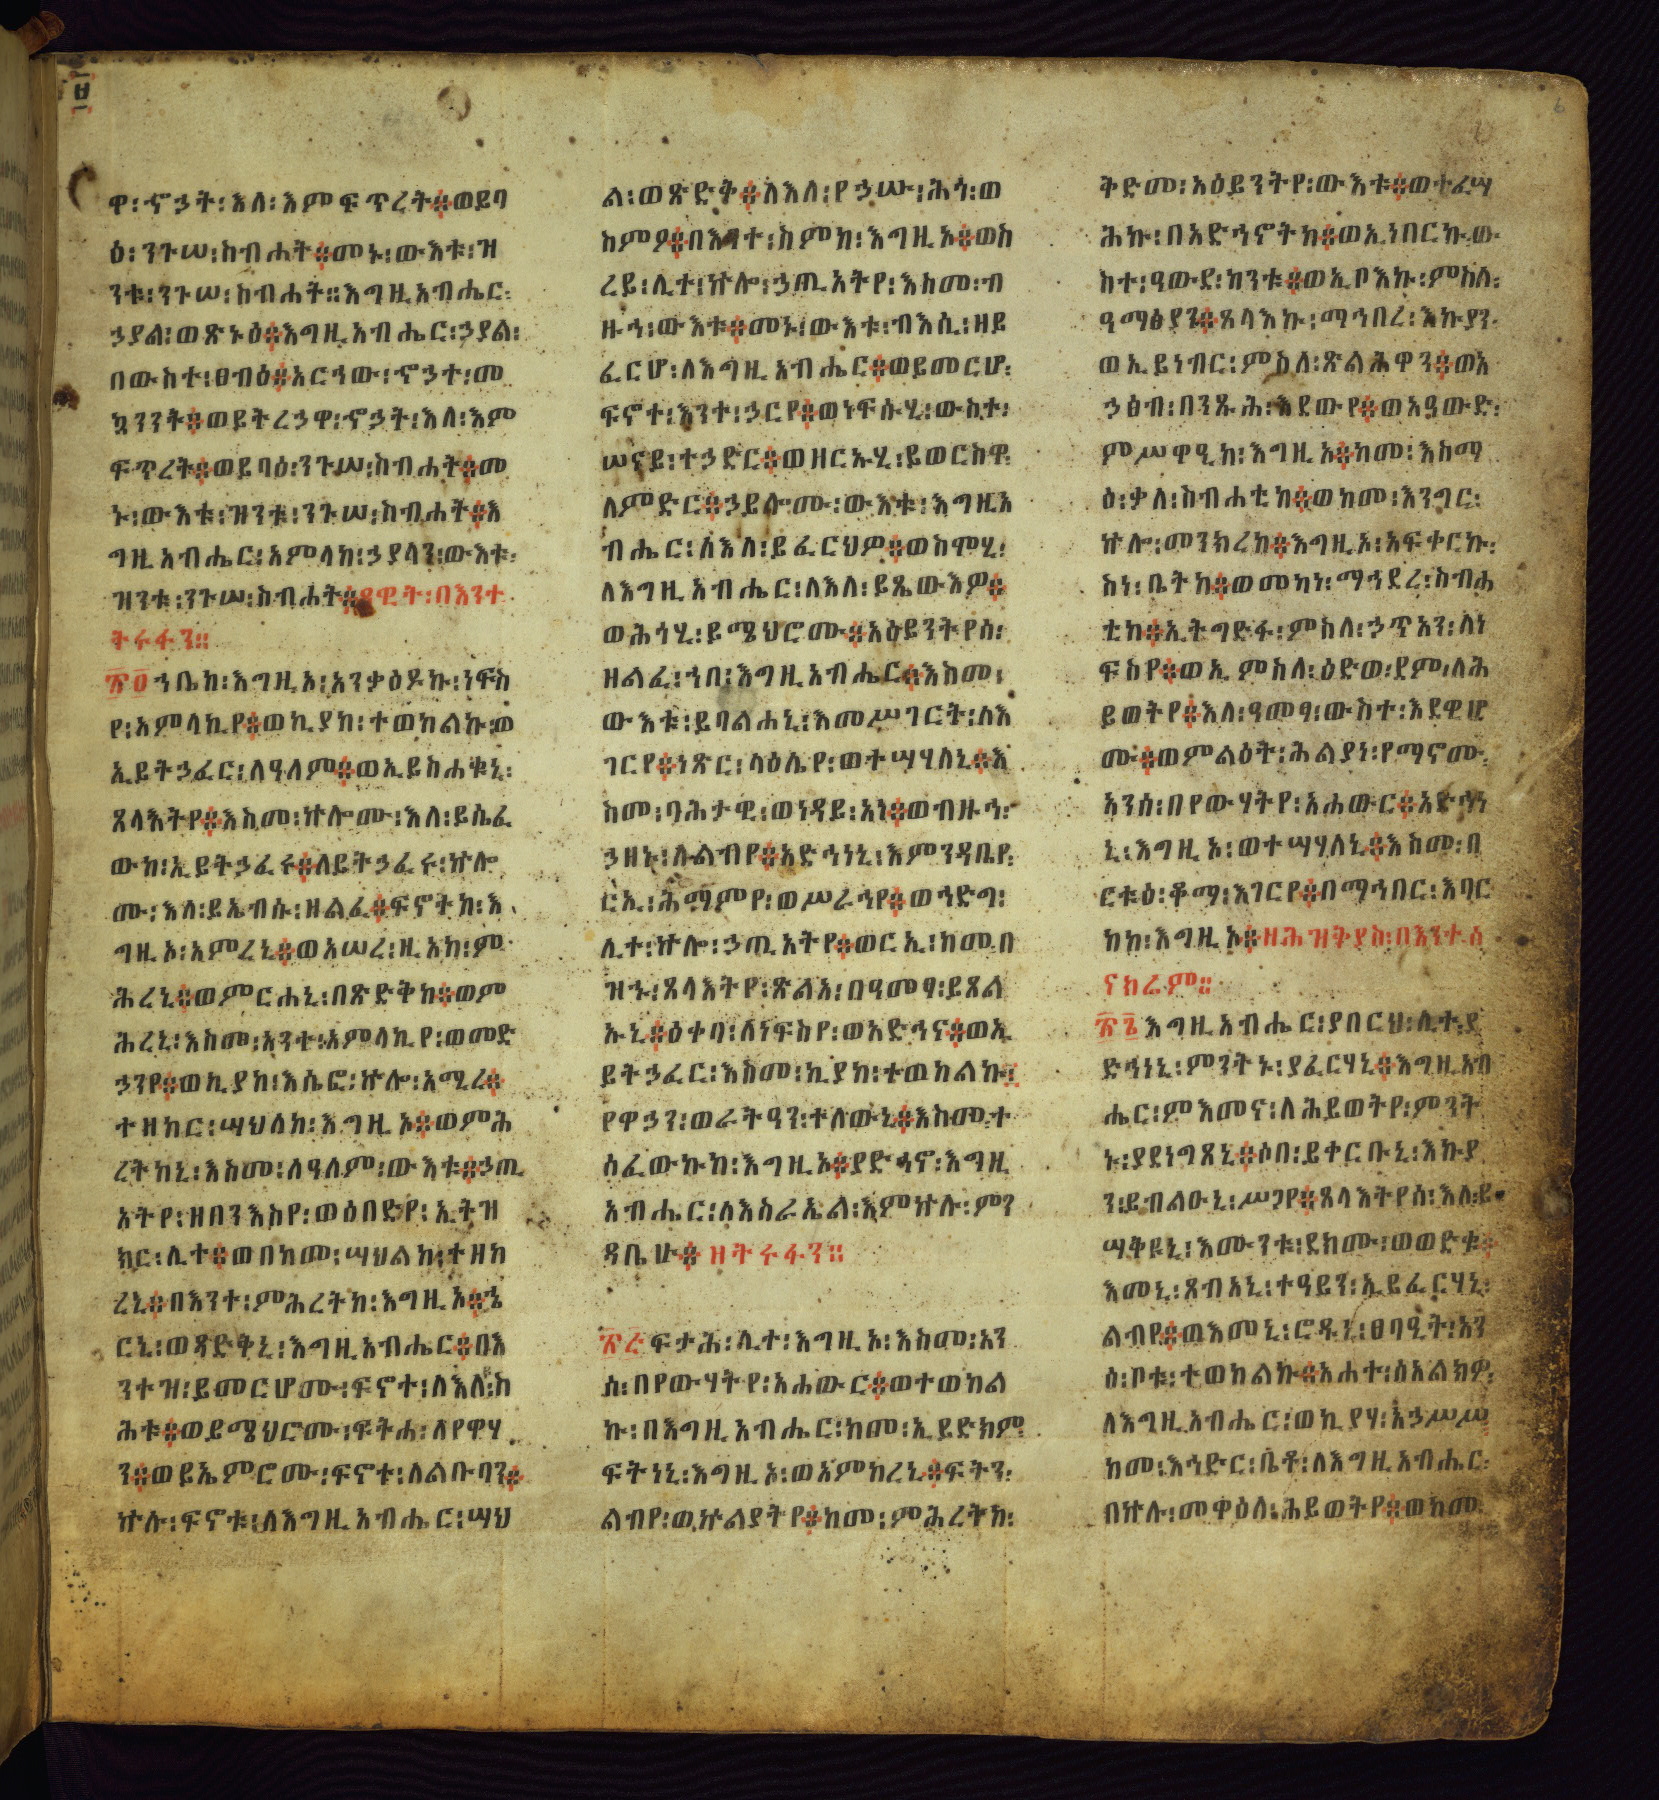 ዋ፡ኆኃት፡እለ፡እምፍጥረት፨ወይባ
ዕ፡ንጉሠ፡ስብሐት፨መኑ፡ውእቱ፡ዝ
ንቱ፡ንጉሠ፡ስብሐት።እግዚአብሔር፡
ኃያል፡ወጽኑዕ፨እግዚአብሔር፡ኃያል፡
በውስተ፡ፀብዕ፨አርኅው፡ኆኃተ፡መ
ኳንንት፨ወይትረኃዋ፡ኆኃት፡እለ፡እም
ፍጥረት፨ወይባዕ፡ንጉሠ፡ስብሐት፨መ
ኑ፡ውእቱ፡ዝንቱ፡ንጉሠ፡ስብሐት፨እ
ግዚአብሔር፡አምላከ፡ኃያላን፡ውእቱ፡
ዝንቱ፡ንጉሠ፡ስብሐት፨ዳዊት፡በእንተ
ትሩፋን።
፳፬ኀቤከ፡እግዚአ፡አንቃዕዶኩ፡ነፍስ
የ፡አምላኪየ፨ወኪያከ፡ተወከልኩ፡ወ
ኢይትኃፈር፡ለዓለም፨ወኢይስሐቁኒ፡
ጸላእትየ፨እስመ፡ኵሎሙ፡እለ፡ይሴፈ
ውከ፡ኢይትኃፈሩ፨ለይትኃፈሩ፡ኵሎ
ሙ፡እለ፡ይኤብሱ፡ዘልፈ፨ፍኖትከ፡እ
ግዚኦ፡አምረኒ፨ወአሠረ፡ዚአከ፡ም
ሕረኒ፨ወምርሐኒ፡በጽድቅከ፨ወም
ሕረኒ፡እስመ፡አንተ፡አምላኪየ፡ወመድ
ኃንየ፨ወኪያከ፡እሴፎ፡ኵሎ፡አሚረ፨
ተዘከር፡ሣህለከ፡እግዚኦ፨ወምሕ
ረትከኒ፡እስመ፡ለዓለም፡ውእቱ፨ኃጢ
አትየ፡ዘበንእስየ፡ወዕበድየ፡ኢትዝ
ክር፡ሊተ፨ወበከመ፡ሣህልከ፡ተዘከ
ረኒ፨በእንተ፡ምሕረትከ፡እግዚኦ፨ኄ
ርኒ፡ወጻድቅኒ፡እግዚአብሔር፨በእ
ንተዝ፡ይመርሆሙ፡ፍኖተ፡ለእለ፡ስ
ሕቱ፨ወይሜህሮሙ፡ፍትሐ፡ለየዋሃ
ን፨ወይኤምሮሙ፡ፍኖተ፡ለልቡባን፨
ኵሉ፡ፍኖቱ፡ለእግዚአብሔር፡ሣህ
ል፡ወጽድቅ፨ለእለ፡የኃሡ፡ሕጎ፡ወ
ስምዖ፨በእንተ፡ስምከ፡እግዚኦ፨ወስ
ረይ፡ሊተ፡ኵሎ፡ኃጢአትየ፡እስመ፡ብ
ዙኅ፡ውእቱ፨መኑ፡ውእቱ፡ብእሲ፡ዘይ
ፈርሆ፡ለእግዚአብሔር፨ወይመርሆ፡
ፍኖተ፡እንተ፡ኃርየ፨ወነፍሱሂ፡ውስተ፡
ሠናይ፡ተኃድር፨ወዘርኡሂ፡ይወርስዋ፡
ለምድር፨ኃይሎሙ፡ውእቱ፡እግዚአ
ብሔር፡ለእለ፡ይፈርህዎ፨ወስሞሂ፡
ለእግዚአብሔር፡ለእለ፡ይጼውእዎ፨
ወሕጎሂ፡ይሜህሮሙ፨አዕይንትየሰ፡
ዘልፈ፡ኀበ፡እግዚአብሔር፨እስመ፡
ውእቱ፡ይባልሐኒ፡እመሥገርት፡ለእ
ገርየ፨ነጽር፡ላዕሌየ፡ወተሣሃለኒ፨እ
ስመ፡ባሕታዊ፡ወነዳይ፡አነ፨ወብዙኅ፡
ኃዘኑ፡ለልብየ፨አድኅነኒ፡እምንዳቤየ፡
ርኢ፡ሕማምየ፡ወሥራኅየ፨ወኅድግ፡
ሊተ፡ኵሎ፡ኃጢአትየ፨ወርኢ፡ከመ፡በ
ዝኁ፡ጸላእትየ፡ጽልአ፡በዓመፃ፡ይጸል
ኡኒ፨ዕቀባ፡ለነፍስየ፡ወአድኅና፨ወኢ
ይትኃፈር፡እስመ፡ኪያከ፡ተወከልኩ፡
የዋኃን፡ወራትዓን፡ተለውኒ፨እስመ፡ተ
ሰፈውኩከ፡እግዚኦ፨ያድኅኖ፡እግዚ
አብሔር፡ለእስራኤል፡እምኵሉ፡ምን
ዳቤሁ፨ዘትሩፋን።
፳፭ፍታሕ፡ሊተ፡እግዚኦ፡እስመ፡አን
ሰ፡በየውሃትየ፡አሐውር፨ወተወከል
ኩ፡በእግዚአብሔር፡ከመ፡ኢይድክም
ፍትነኒ፡እግዚኦ፡ወአምከረኒ፨ፍትን፡
ልብየ፡ወኵልያትየ፨ከመ፡ምሕረትከ፡
ቅድመ፡አዕይንትየ፡ውእቱ፨ወተፈሣ
ሕኩ፡በአድኅኖትከ፨ወኢነበርኩ፡ው
ስተ፡ዓውደ፡ከንቱ፨ወኢቦእኩ፡ምስለ፡
ዓማፅያን፨ጸላእኩ፡ማኅበረ፡እኩያን፡
ወኢይነብር፡ምስለ፡ጽልሕዋን፨ወአ
ኃፅብ፡በንጹሕ፡እደውየ፨ወአዓውድ፡
ምሥዋዒከ፡እግዚኦ፨ከመ፡እስማ
ዕ፡ቃለ፡ስብሐቲከ፨ወከመ፡እንግር፡
ኵሎ፡መንክረከ፨እግዚኦ፡አፍቀርኩ፡
ስነ፡ቤትከ፨ወመካነ፡ማኅደረ፡ስብሐ
ቲከ፨ኢትግድፋ፡ምስለ፡ኃጥአን፡ለነ
ፍስየ፨ወኢምስለ፡ዕድወ፡ደም፡ለሕ
ይወትየ፨እለ፡ዓመፃ፡ውስተ፡እደዊሆ
ሙ፨ወምልዕት፡ሕልያነ፡የማኖሙ፡
አንሰ፡በየውሃትየ፡አሐውር፨አድኅነ
ኒ፡እግዚኦ፡ወተሣሃለኒ፨እስመ፡በ
ርቱዕ፡ቆማ፡እገርየ፨በማኅበር፡እባር
ከከ፡እግዚኦ፨ዘሕዝቅያስ፡በእንተ፡ሰ
ናክሬም።
፳፮እግዚአብሔር፡ያበርህ፡ሊተ፡ያ
ድኅነኒ፡ምንትኑ፡ያፈርሃኒ፨እግዚአብ
ሔር፡ምእመና፡ለሕይወትየ፡ምንት
ኑ፡ያደነግጸኒ፨ሶበ፡ይቀርቡኒ፡እኩያ
ን፡ይብልዑኒ፡ሥጋየ፨ጸላእትየሰ፡እለ፡ይ
ሣቅዩኒ፡እሙንቱ፡ደክሙ፡ወወድቁ፨
እመኒ፡ጸብአኒ፡ተዓይን፡ኢይፈርሃኒ፡
ልብየ፨ወእመኒ፡ሮዱኒ፡ፀባዒት፡አን
ሰ፡ቦቱ፡ተወከልኩ፨አሐተ፡ሰአልክዎ፡
ለእግዚአብሔር፡ወኪያሃ፡አኃሥሥ
ከመ፡እኅድር፡ቤቶ፡ለእግዚአብሔር፡
በኵሉ፡መዋዕለ፡ሕይወትየ፨ወከመ